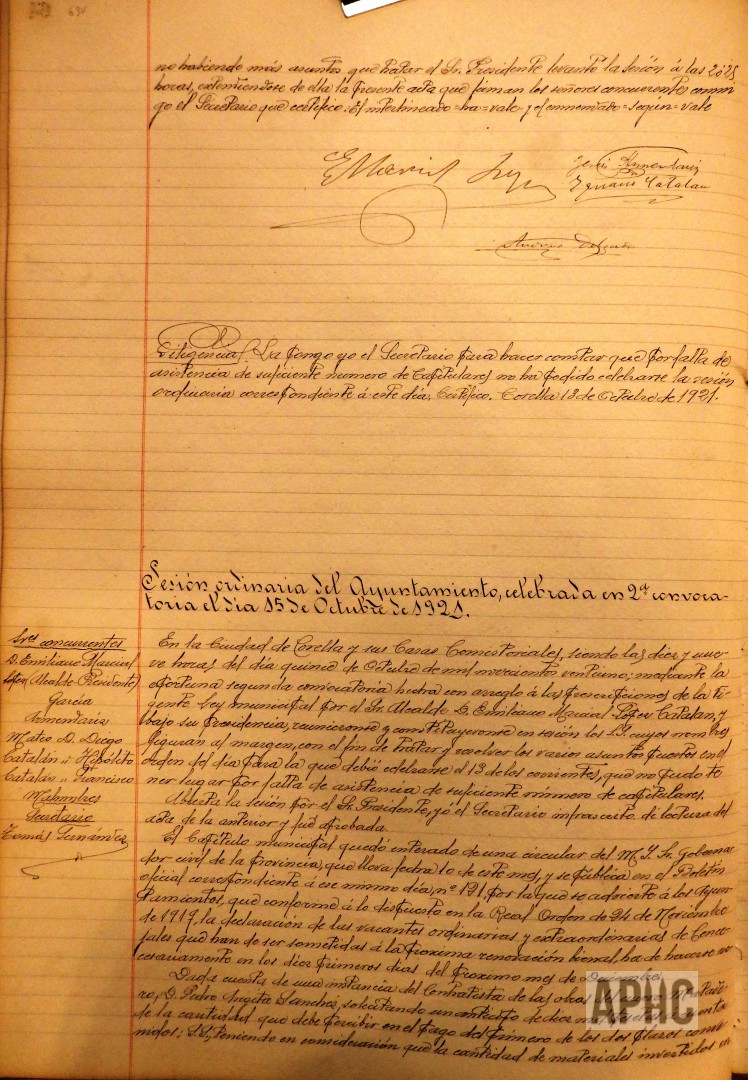 no habiendo más asuntos que tratar el Sr. Presidente levantó la sesión á las
horas, extendiéndose de ella la presente acta que firman los señores concurrentes conmi
go el Secretario que certifico. El interlineado=ha=vale y el enmendado=según=vale
Ignacio Catalan
Diligencia. La pongo yo el Secretario para hacer constar que por falta de
asistencia de suficiente número de Capitulares no ha podido celebrarse la sesión
ordinaria correspondiente á este día. Certifico. Corella 13 de Octubre de 1921.
Sesión ordinaria del Ayuntamiento, celebrada en 2ª convoca-
toria el día 15 de Octubre de 1921.
Sres concurrentes
D. Emiliano Marcial
López (Alcalde Presidente)
García
Armendáriz
Mateo D. Diego
Catalán " Hipólito
Catalán " Francisco
Malumbres
Sandalio
Tomás Fernández
En la Ciudad de Corella y sus Casas Consistoriales, siendo las diez y nue-
ve horas del día quince de Octubre de mil novecientos veintiuno; mediante la
oportuna segunda convocatoria hecha con arreglo á las prescripciones de la vi
gente Ley municipal por el Sr. Alcalde D. Emiliano Marcial López Catalan, y
bajo su Presidencia, reuniéronse y constituyéronse en sesión los Sres cuyos nombres
figuran al margen, con el fin de tratar y resolver los varios asuntos puestos en el
orden del día para la que debió celebrarse el 13 de los corrientes, que no pudo te
ner lugar por falta de asistencia de suficiente número de capitulares.
Abierta la sesión por el Sr. Presidente, yó el Secretario infrascrito dí lectura del
acta de la anterior y fué aprobada.
El Capítulo municipal quedó enterado de una circular del M. Y. Sr. Goberna
dor civil de la Provincia, que lleva fecha 10 de este mes, y se publica en el Boletín
oficial correspondiente á ese mismo día, nº 121, por la que se advierte á los Ayun
tamientos, que conforme á lo dispuesto en la Real Orden de 24 de Noviembre
de 1919, la declaración de las vacantes ordinarias y extraordinarias de Conce
jales que han de ser sometidas á la próxima renovación bienal, ha de hacerse ne
cesariamente en los diez primeros días del próximo mes de Diciembre.
Dada cuenta de una instancia del Contratista de las obras
ro, D. Pedro Sanchez, solicitando un anticipo de diez mil
de la cantidad que debe percibir en el pago del primero de los dos plazos conve
nidos; S.S. teniendo en consideración que la cantidad de materiales invertidos en
APHC